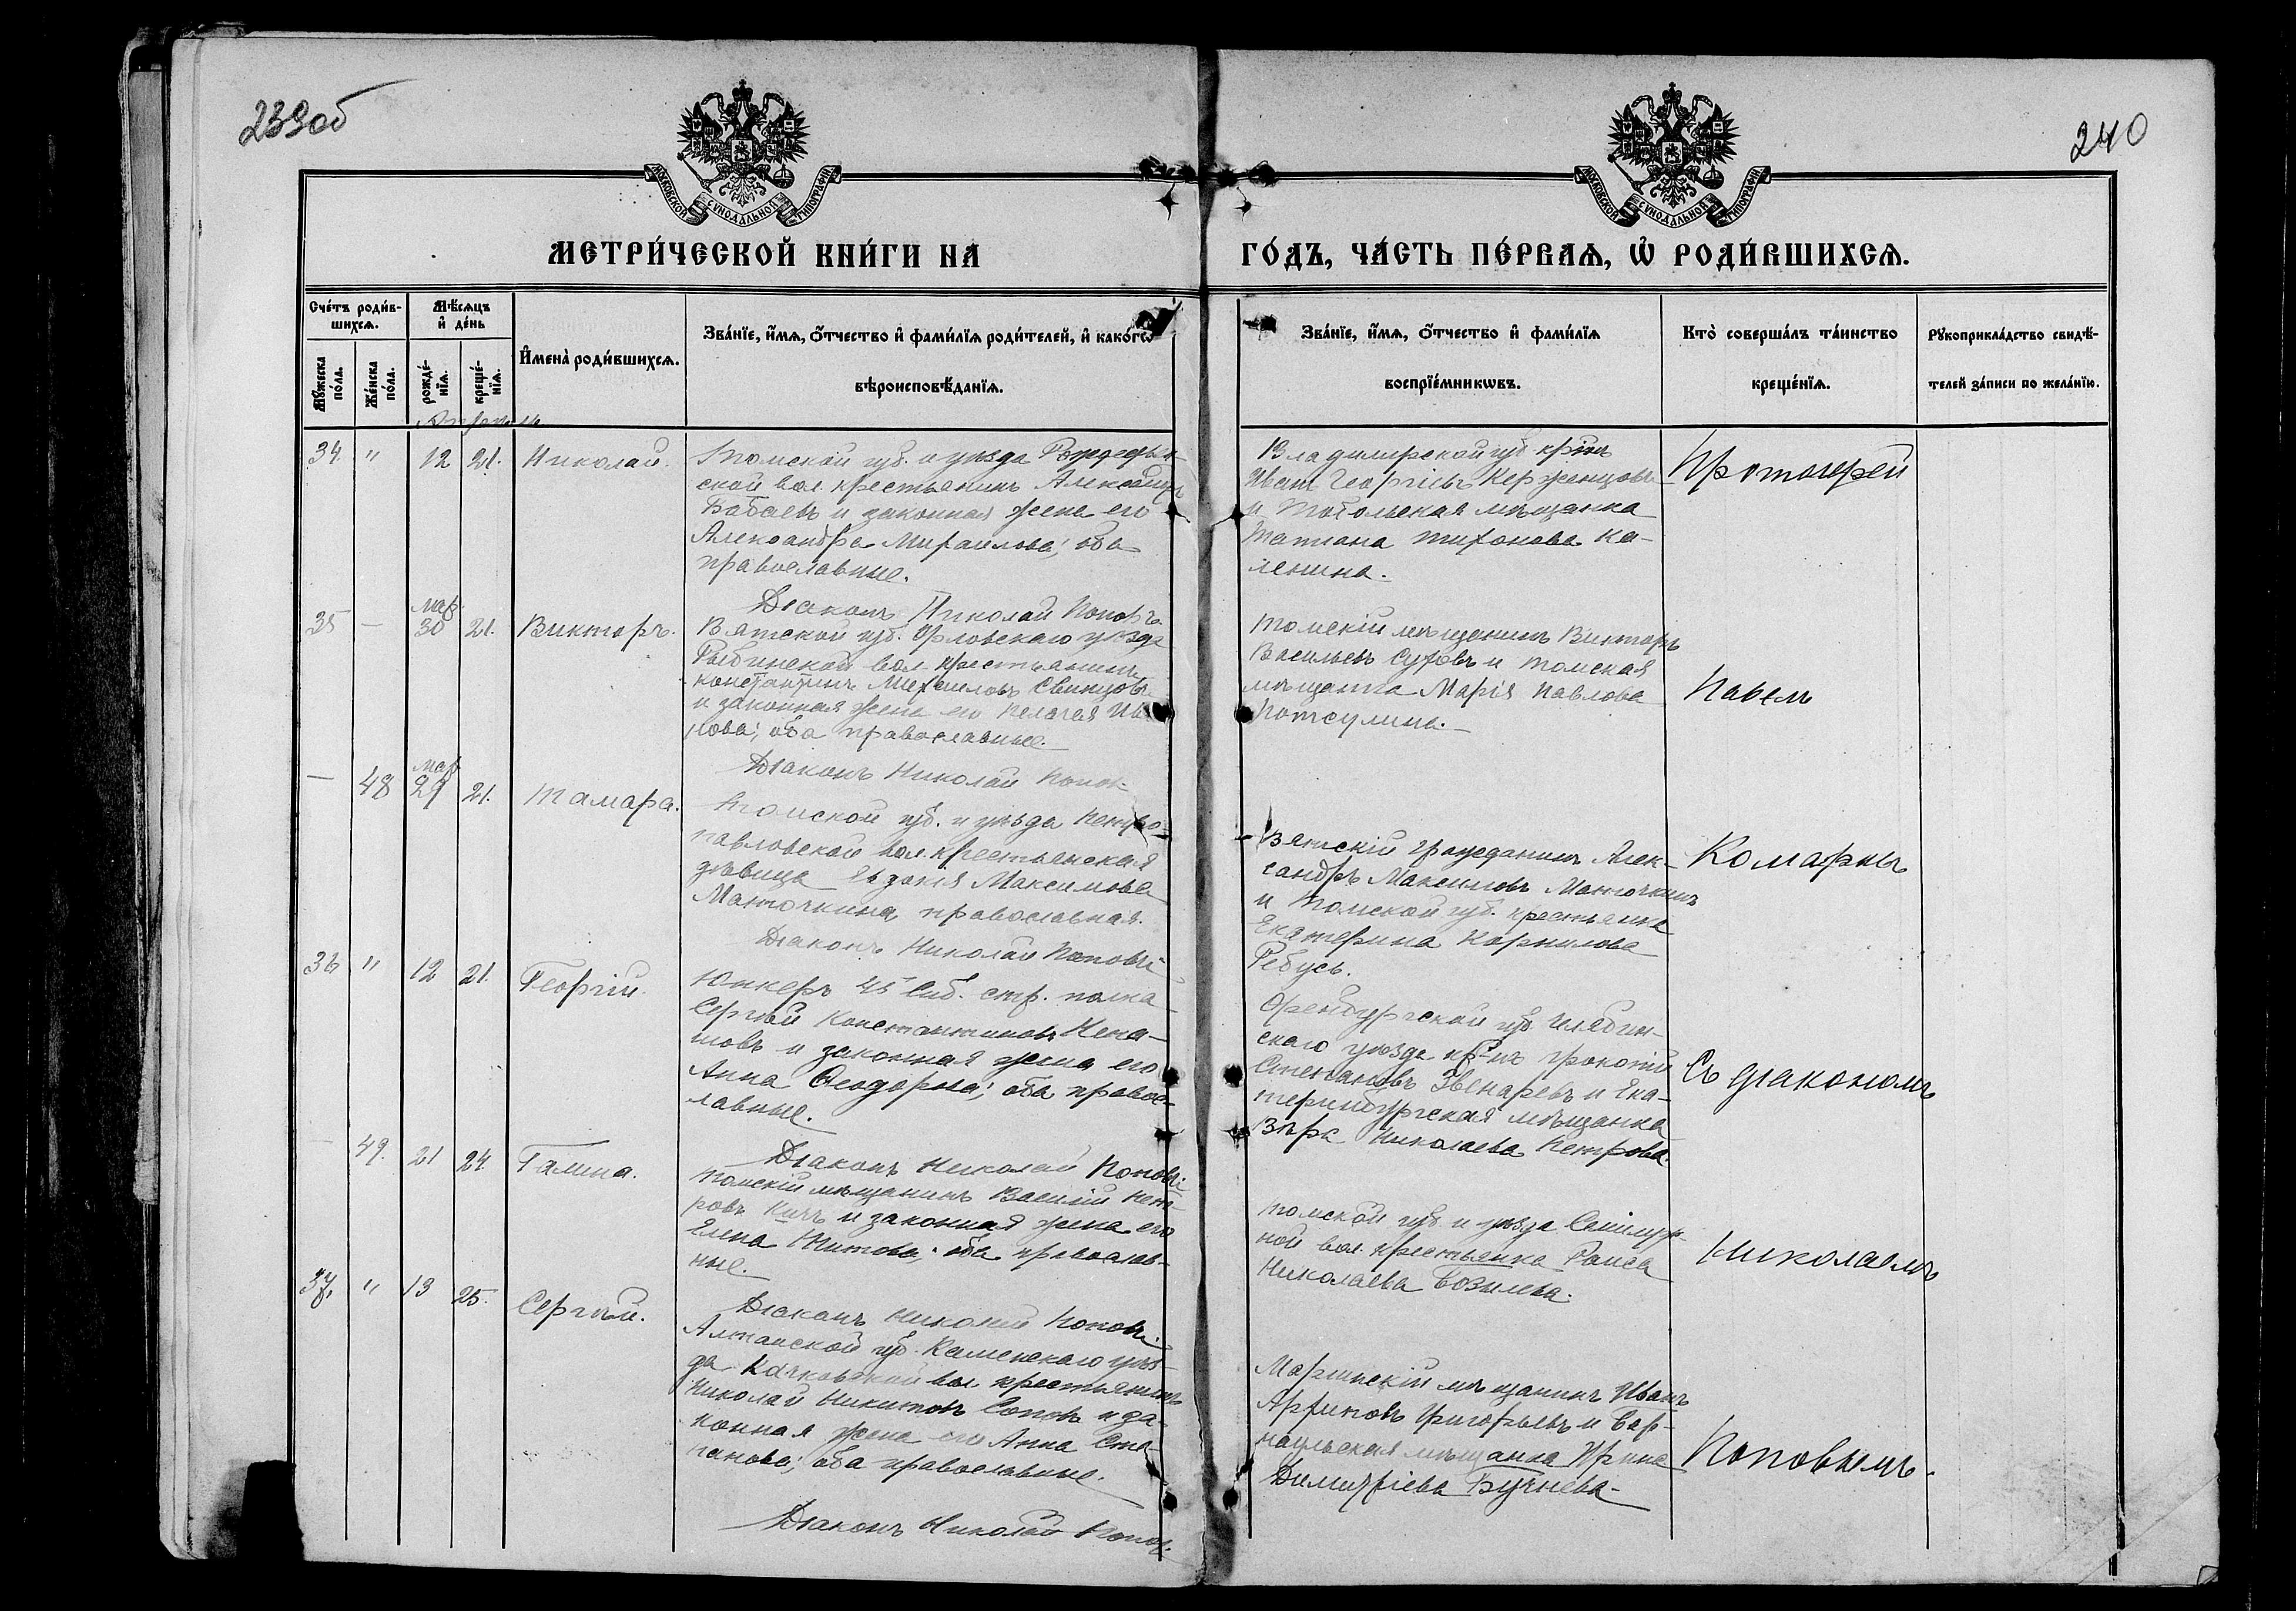 239об
240
МОСКОВСКОЙ СѴНОДАЛЬНОЙ ТИПОГРАФІИ
МОСКОВСКОЙ СѴНОДАЛЬНОЙ ТИПОГРАФІИ
МЕТРИ́ЧЕСКОЙ КНИ́ГИ НА
ГО́ДЪ, ЧА́СТЬ ПЕ́РВАѦ, Ѡ РОДИ́ВШИХСѦ.
Сче́тъ роди́в-
шихсѧ.
Мꙋ́жеска
по́ла.
Же́нска
по́ла.
Мѣ́сѧцъ
и҆ де́нь
рожде́-
нїѧ.
креще́-
нїѧ.
И҆мена̀ роди́вшихсѧ.
Зва́нїе, и҆́мѧ, ѻ҆́тчество и҆ фами́лїѧ роди́телей, и҆ како́гѡ
вѣроисповѣ́данїѧ.
Зва́нїе, и҆́мѧ, ѻ҆́тчество и҆ фами́лїѧ
воспрїе́мникѡвъ.
Кто̀ соверша́лъ та́инство
креще́нїѧ.
Рꙋкоприкла́дство свидѣ́-
телей за́писи по жела́нїю.
Апрель
34. " 12 21. Николай.
Томской губ. и уезда
ской вол. крестьянинъ
Бабаевъ и законная жена его
Александра Михаилова; оба
православные.
Дiаконъ Николай Поповъ
Владимирской губ. кр-нъ
Иванъ Георгіевъ Керженцовъ
и Тобольская мѣщанка
Татiана Тихонова Ка-
ленина.
Протоiерей
35 — мар. 30 21. Викторъ.
Вятской губ. Орловскаго уѣзда
вол. крестьянинъ
Константинъ Михаиловъ Свинцовъ
и законная жена его Пелагея Ива
нова; оба православные.
Дiаконъ Николай Попов
Томскiй мѣщанинъ Викторъ
Васильевъ Суховъ и томская
мѣщанка Марiя Павлова
Павелъ
— 48 мар 29 21. Тамара.
Томской губ. и уѣзда Петро-
павловской вол. крестьянская
дѣвица Евдокiя Максимова
Манточкина, православная.
Дiаконъ Николай Поповъ
Вятскiй гражданинъ Алек-
сандръ Максимовъ Манточкинъ
и Томской губ. крестьянка
Екатерина Корнилова
Ребусь.
Комаровъ
36 " 12 21. Георгiй.
Юнкеръ 45 Сиб. стр. полка
Сергѣй Константиновъ Кена-
товъ и законная жена его
Анна Ѳеодорова; оба правос-
лавные.
Дiаконъ Николай Поповъ
Оренбургской губ. Челябин-
скаго уѣзда кр-нъ
Степановъ Звенаревъ и Ека-
теринбургская мѣщанка
Вѣра Николаева Петрова.
Съ дiакономъ
— 49. 21 24 Галина.
Томскiй мѣщанинъ Василiй Пет-
ровъ Китъ и законная жена его
Елена Титова; оба православ-
ные.
Дiаконъ Николай Поповъ
Томской губ. и уѣзда
ной вол. крестьянка Раиса
Николаева
Николаемъ
37. " 13 25. Сергѣй.
Алтайской губ. Каменскаго уѣз-
да вол. крестьянинъ
Николай Никитовъ и за-
конная жена его Анна Сте-
панова; оба православные.
Дiаконъ Николай Попов
Марiинскiй мѣщанинъ Иванъ
Григорьевъ и Бар-
наульская мѣщанка Ирина
Димитрiева Бучнева.
Поповымъ.